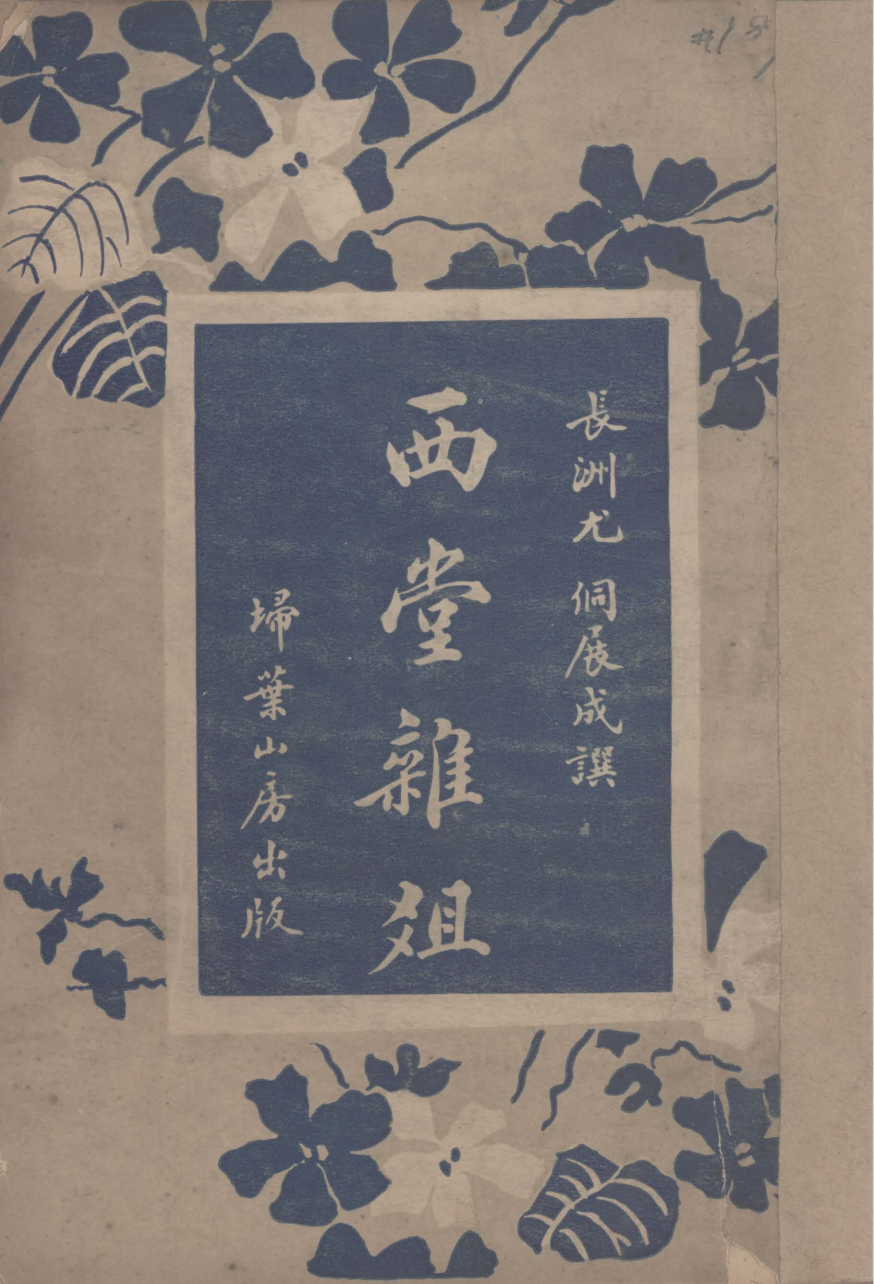 長洲尤侗展成譔
西堂雜俎
埽葉山房出版